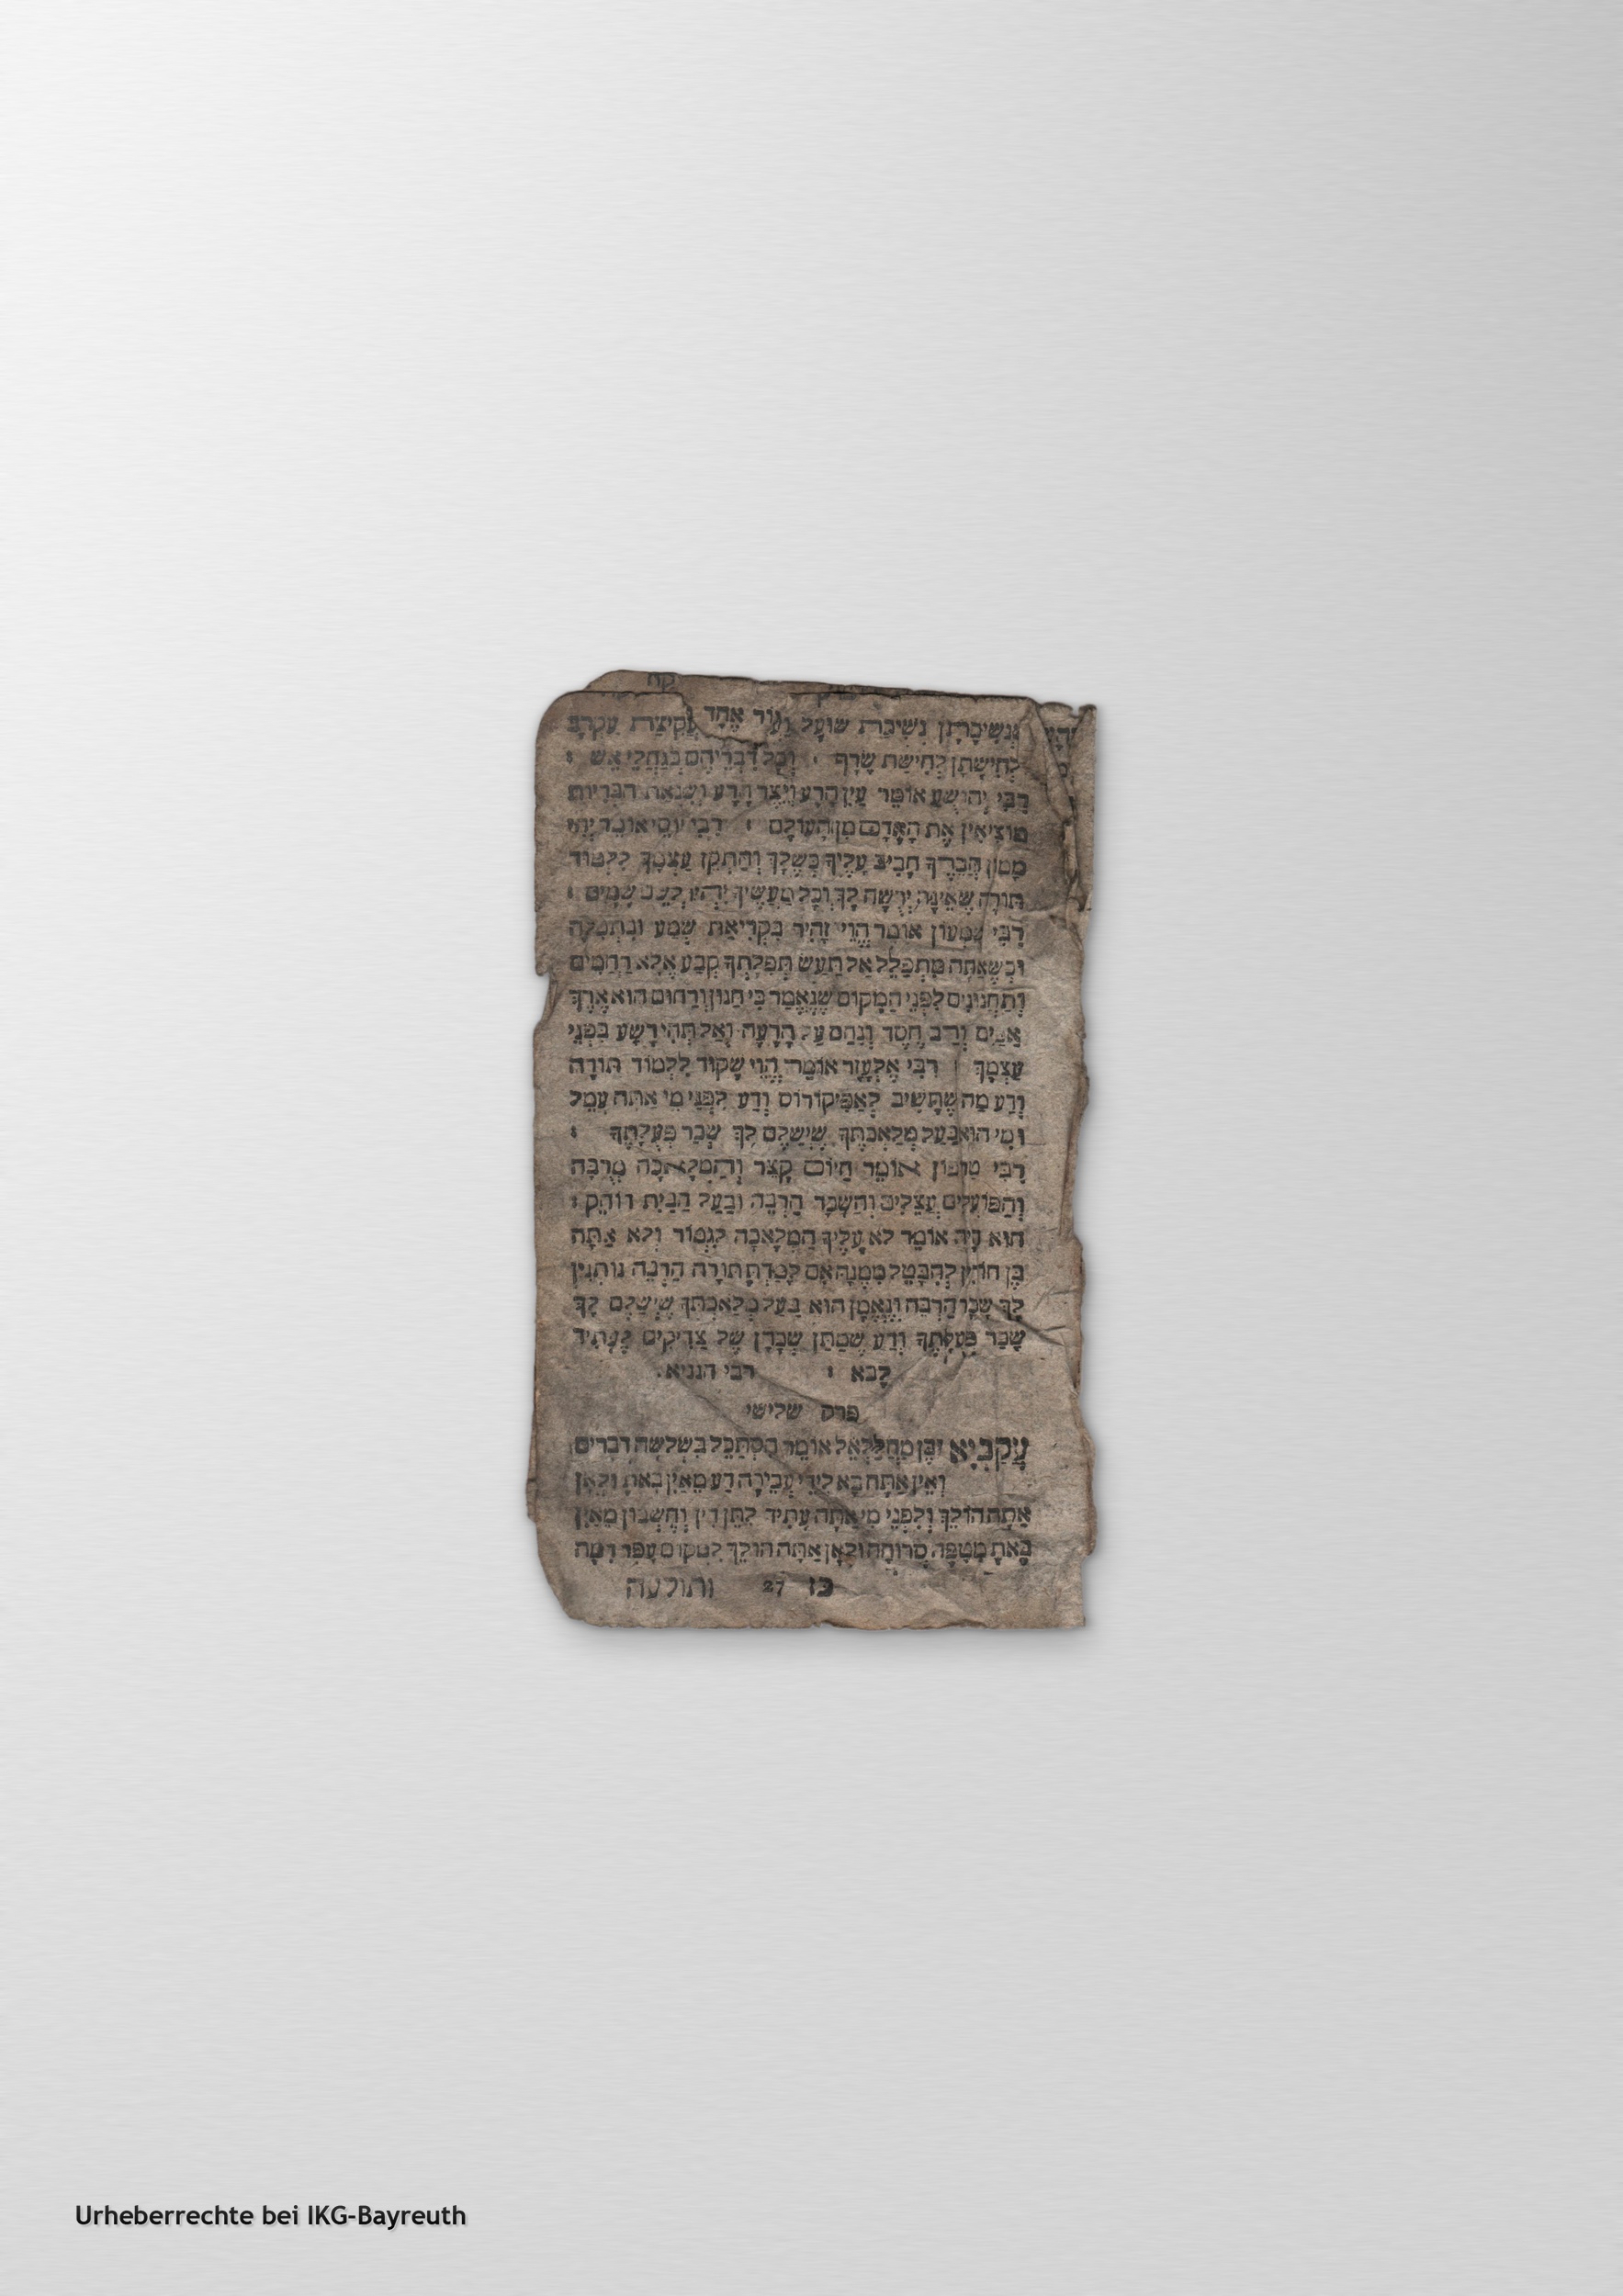 קח
שנשיכתן נשיכת שועל עור אחד ועקיצתן עקיצת עקרב
לחישתן לחישת שרף : וכל דבריהם כגחלי אש :
רבי יהושע אומר עין הרע ויצר הרע ושנאת הבריות
מוציאין את האדם מן העולם : רבי יוסי אומר יהא
ממון חברך חביב עליך כשלך והתקן עצמך ללמוד
תורה שאינה ירשה לך וכל מעשיך יהיו לשם שמים :
רבי שמעון אומר הוי זהיר בקריאת שמע ובתפלה
וכשאתה מתפלל אל תעש תפלתך קבע אלא רחמים
ותחנונים לפני המקום שנאמר כי חנון ורחום הוא ארך
אפים ורב חסד ונחם על הרעה ואל תהי רשע בפני
עצמך : רבי אלעזר אומר הוי שקוד ללמוד תורה
ודע מה שתשיב לאפיקורוס ודע לפני מי אתה עמל
ומי הוא בעל מלאכתך שישלם לך שכר פעלתך :
רבי טרפון אומר היום קצר והמלאכה מרבה
והפועלים עצלים והשכר הרבה ובעל הבית דוחק :
הוא היה אומר לא עליך המלאכה לגמור ולא אתה
בן חורין להבטל ממנה אם למדת תורה הרבה נותנין
לך שכר הרבה ונאמן הוא בעל מלאכתך שישלם לך
שכר פעלתך ודע שמתן שכרן של צדיקים לעתיד
לבא : רבי חנניא.
פרק שלישי
עקביא בן מהללאל אומר הסתכל בשלשה דברים
ואין אתה בא לידי עבירה דע מאין באת ולאן
אתה הולך ולפני מי אתה עתיד לתן דין וחשבון מאין
באת מטפה סרוחה ולאן אתה הולך למקום עפר רמה
כז 27 ותולעה
Urheberrechte bei IKG-Bayreuth